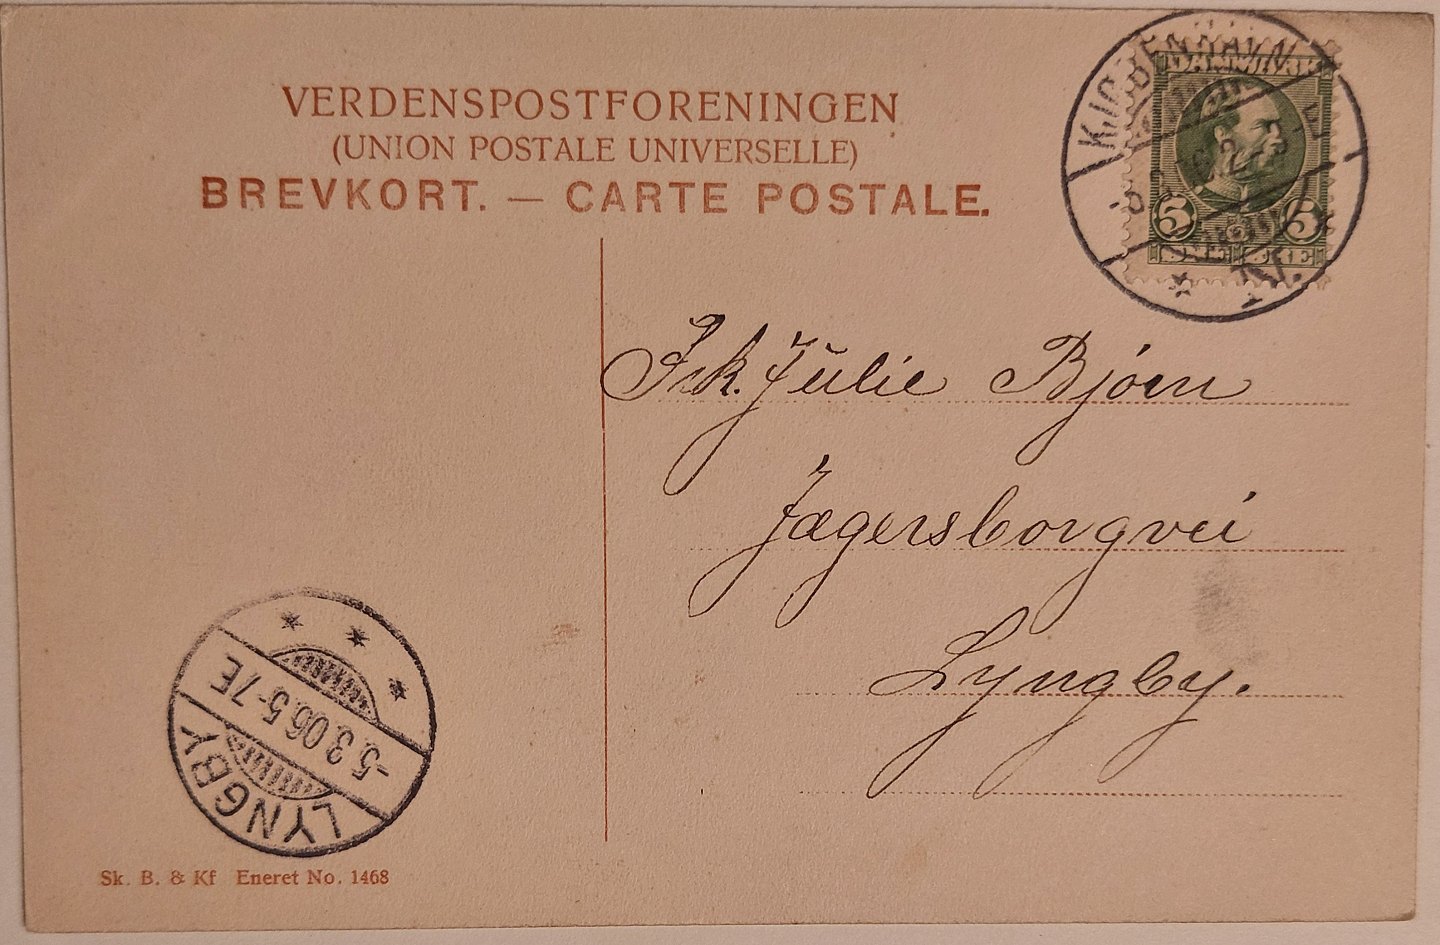 VERDENSPOSTFORENINGEN
(UNION POSTALE UNIVERSELLE)
BREVKORT. — CARTE POSTALE.
KJØBENHAVN
DANMARK
5 5
ØRE
Frk. Julie Bjørn
Jægersborgvei
Lyngby.
5.3.06.5-7E
LYNGBY
Sk. B. & Kf Eneret No. 1468